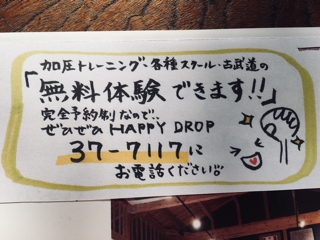 加圧トレーニング・各種スクール・古武道の
「無料体験できます!!」
完全予約制なので、
ぜひぜひ HAPPY DROP
37-7117に
お電話ください。